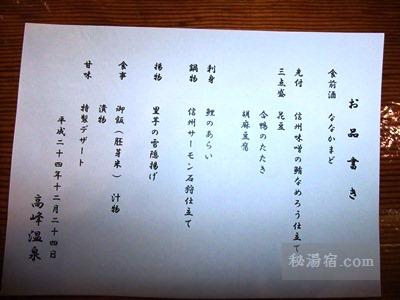 お品書き
食前酒 ななかまど
先付 信州味噌の鯵なめろう仕立て
三点盛 花豆
合鴨のたたき
胡麻豆腐
刺身 鯉のあらい
鍋物 信州サーモン石狩仕立て
揚物 里芋の雲隠揚げ
食事 御飯(胚芽米) 汁物
漬物
甘味 特製デザート
平成二十四年十二月二十四日
高峰温泉
秘湯宿.com